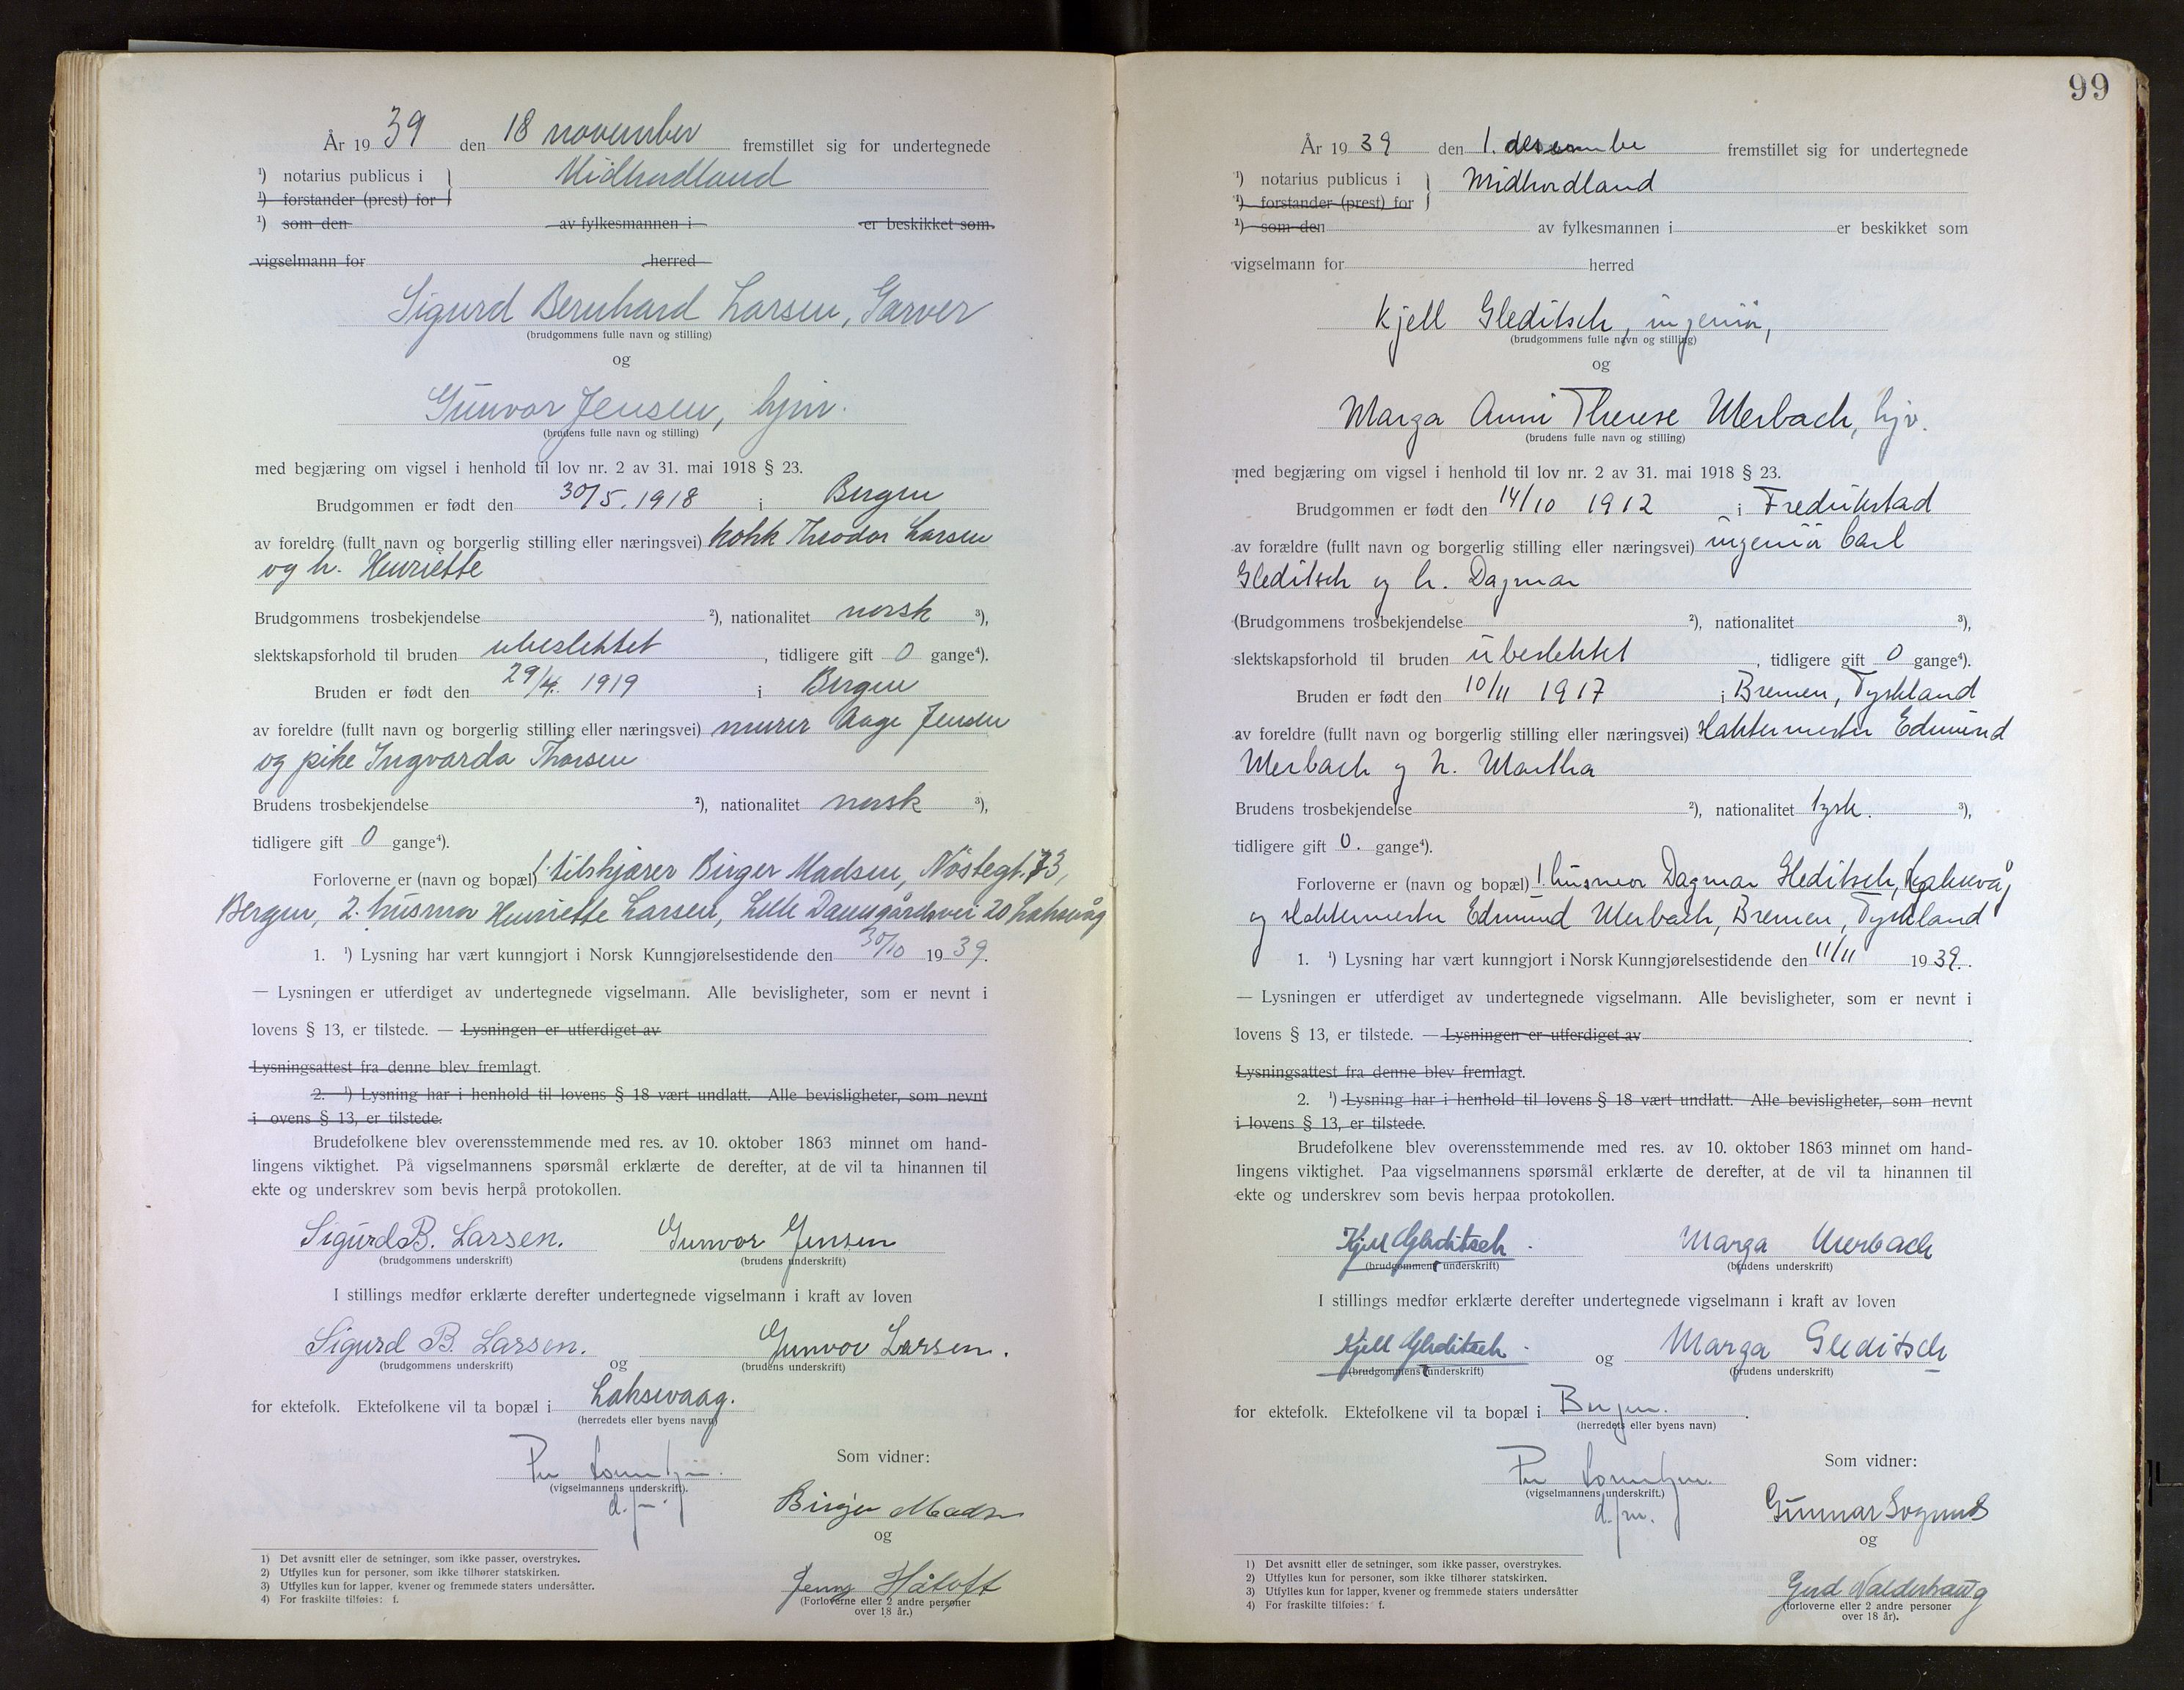 År 19 39 den 18 november fremstillet sig for undertegnede
¹) notarius publicus i } Midhordland
¹) forstander (prest) for
¹) som den av fylkesmannen i er beskikket som
vigselmann for herred
Sigurd Bernhard Larsen, Garver
(brudgommens fulle navn og stilling)
og
Gunvor Jensen, hjv.
(brudens fulle navn og stilling)
med begjæring om vigsel i henhold til lov nr. 2 av 31. mai 1918 § 23.
Brudgommen er født den 30/5. 1918 i Bergen
av foreldre (fullt navn og borgerlig stilling eller næringsvei) kokk Theodor Larsen
og h. Henriette
Brudgommens trosbekjendelse ²), nationalitet norsk ³),
slektskapsforhold til bruden ubeslektet, tidligere gift 0 gange⁴).
Bruden er født den 29/4. 1919 i Bergen
av foreldre (fullt navn og borgerlig stilling eller næringsvei) murer Aage Jensen
og pike Ingvarda Thorsen
Brudens trosbekjendelse ²), nationalitet norsk ³),
tidligere gift 0 gange⁴).
Forloverne er (navn og bopæl) 1. tilskjærer Birger Madsen, Nöstegt. 73,
Bergen, 2. husmor Henriette Larsen, Lille Damsgårdsvei 20 Laksevåg
1. ¹) Lysning har vært kunngjort i Norsk Kunngjørelsestidende den 30/10 19 39.
— Lysningen er utferdiget av undertegnede vigselmann. Alle bevisligheter, som er nevnt i
lovens § 13, er tilstede. — Lysningen er utferdiget av
Lysningsattest fra denne blev fremlagt.
2. ¹) Lysning har i henhold til lovens § 18 vært undlatt. Alle bevisligheter, som nevnt
i ovens § 13, er tilstede.
Brudefolkene blev overensstemmende med res. av 10. oktober 1863 minnet om hand-
lingens viktighet. På vigselmannens spørsmål erklærte de derefter, at de vil ta hinannen til
ekte og underskrev som bevis herpå protokollen.
Sigurd B. Larsen. Gunvor Jensen
(brudgommens underskrift) (brudens underskrift)
I stillings medfør erklærte derefter undertegnede vigselmann i kraft av loven
Sigurd B. Larsen. og Gunvor Larsen.
(brudgommens underskrift) (brudens underskrift)
for ektefolk. Ektefolkene vil ta bopæl i Laksevaag.
(herredets eller byens navn)
Som vidner:
Per
(vigselmannens underskrift).
d.fm.
Birger Madsn
og
Jenny Håtoft
(Forloverne eller 2 andre personer
over 18 år.)
1) Det avsnitt eller de setninger, som ikke passer, overstrykes.
2) Utfylles kun for personer, som ikke tilhører statskirken.
3) Utfylles kun for lapper, kvener og fremmede staters undersåtter.
4) For fraskilte tilføies: f.
99
År 19 39 den 1. desembe fremstillet sig for undertegnede
¹) notarius publicus i } Midhordland
¹) forstander (prest) for
¹) som den av fylkesmannen i er beskikket som
vigselmann for herred
Kjell Gleditsch, ingeniör,
(brudgommens fulle navn og stilling)
og
Marga Anni Therese Uerbach, hjv.
(brudens fulle navn og stilling)
med begjæring om vigsel i henhold til lov nr. 2 av 31. mai 1918 § 23.
Brudgommen er født den 14/10 1912 i Fredrikstad
av forældre (fullt navn og borgerlig stilling eller næringsvei) ingeniör Carl
Gleditsch og h. Dagmar
(Brudgommens trosbekjendelse ²), nationalitet ³),
slektskapsforhold til bruden ubeslektet, tidligere gift 0 gange⁴).
Bruden er født den 10/11 1917 i Bremen, Tyskland
av foreldre (fullt navn og borgerlig stilling eller næringsvei) Slaktermester Edmund
Uerbach og h. Martha
Brudens trosbekjendelse ²), nationalitet tysk. ³),
tidligere gift 0. gange⁴).
Forloverne er (navn og bopæl) 1. husmor Dagmar Gleditsch, Laksevåg
og slaktermester Edmund Uerbach, Bremen, Tyskland
1. ¹) Lysning har vært kunngjort i Norsk Kunngjørelsestidende den 11/11 19 39.
— Lysningen er utferdiget av undertegnede vigselmann. Alle bevisligheter, som er nevnt i
lovens § 13, er tilstede. — Lysningen er utferdiget av
Lysningsattest fra denne blev fremlagt.
2. ¹) Lysning har i henhold til lovens § 18 vært undlatt. Alle bevisligheter, som nevnt
i lovens § 13, er tilstede.
Brudefolkene blev overensstemmende med res. av 10. oktober 1863 minnet om hand-
lingens viktighet. Paa vigselmannens spørsmål erklærte de derefter, at de vil ta hinannen til
ekte og underskrev som bevis herpaa protokollen.
Kjell Gleditsch. Marga Uerbach
(brudgommens underskrift) (brudens underskrift)
I stillings medfør erklærte derefter undertegnede vigselmann i kraft av loven
Kjell Gleditsch. og Marga Gleditsch
(brudgommens underskrift) (brudens underskrift)
for ektefolk. Ektefolkene vil ta bopæl i Bergen.
(herredets eller byens navn)
Som vidner:
Per
(vigselmannens underskrift.)
d.fm.
Gunnar
og
Gerd Valderhaug
(forloverne eller 2 andre personer
over 18 år).
1) Det avsnitt eller de setninger, som ikke passer, overstrykes.
2) Utfylles kun for personer, som ikke tilhører statskirken.
3) Utfylles kun for lapper, kvener og fremmede staters undersåtter
4) For fraskilte tilføies: f.